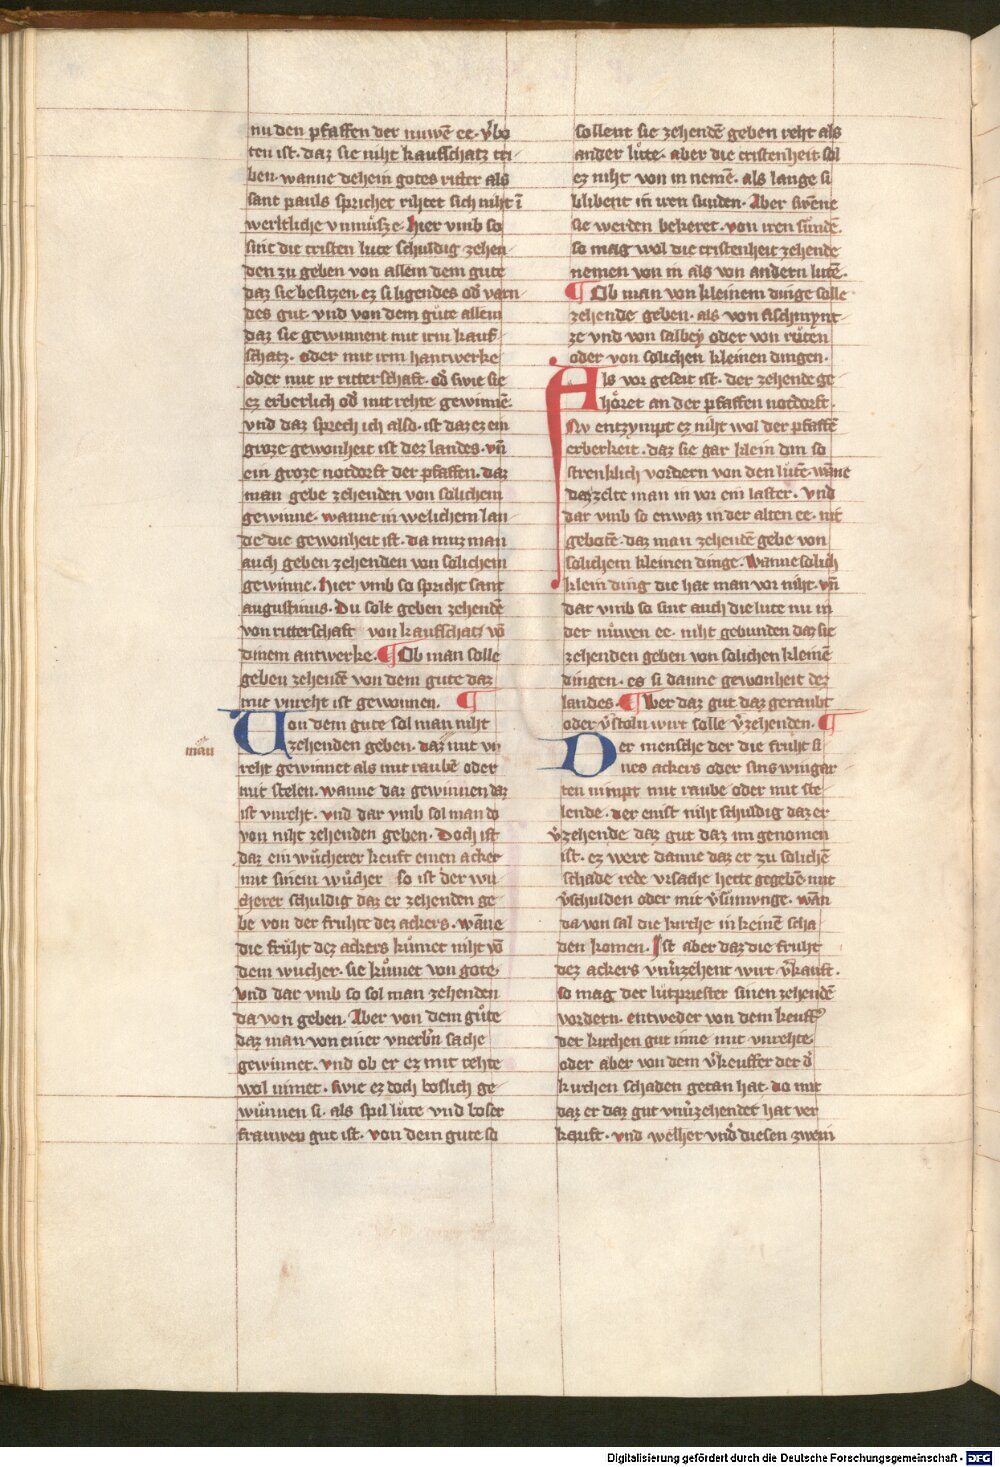 nu den pfaffen der nuwē ee · v̾bo
ten ist · daz sie niht kaufschatz tri
ben · wanne dehein gotes ritter als
sant pauls sprichet rihtet sich niht ī
werltliche vnmuͤsze · hier vmb so
sint die cristen lute schuldig zehen
den zu geben von allem dem gute
daz sie besitzen · ez si ligendes od̾ varn
des gut · vnd von dem guͤte allem
daz sie gewinnent mit irm kauf
schatz · oder mit irm hantwerke
oder mit ir ritterschaft · od̾ swie sie
ez erberlich od̾ mit rehte gewinnē ·
vnd daz sprech ich also · ist daz ez ein
groze gewonheit ist dez landes · vn̄
ein groze notdorft der pfaffen · daz
man gebe zehenden von solichem
gewinne · wanne in welichem lan
de die gewonheit ist · da muz man
auch geben zehenden von solichem
gewinne · hier vmb so spricht sant
augustinus · Du solt geben zehendē
von ritterschaft von kaufschatz vō
dinem antwerke · ¶ Ob man solle
geben zehendē von dem gute daz
mit vnreht ist gewonnen · ¶
Uon dem gute sol man niht
zehenden geben · daz mit vn
man
reht gewinnet als mit raubē oder
mit stelen · wanne daz gewinnen daz
ist vnreht · vnd dar vmb sol man do
von niht zehenden geben · Doch ist
daz ein wuͤcherer keuft einen acker
mit sinem wuͤcher so ist der wu
cherer schuldig daz er zehenden ge
be von der fruhte dez ackers · wāne
die fruͤht dez ackers kuͤmet niht vō
dem wucher · sie kuͤmet von gote
vnd dar vmb so sol man zehenden
da von geben · Aber von dem guͤte
daz man von einer vnerbˀn sache
gewinnet · vnd ob er ez mit rehte
wol nimet · swie ez doch boslich ge
wuͤnnen si · als spil luͤte vnd boser
frauwen gut ist · von dem gute so
sollent sie zehendē geben reht als
ander luͤte · aber die cristenheit sol
ez niht von in nemē · als lange si
blibent in iren sunden · Aber swēne
sie werden bekeret · von iren suͤndē ·
so mag wol die cristenheit zehende
nemen von in als von andern lutē ·
¶ Ob man von kleinem dinge solle
zehende geben · als von aschmynt
ze vnd von salbey oder von ruͤten
oder von solichen kleinen dingen ·
Als vor geseit ist · der zehende ge
hoͤret an der pfaffen notdorft ·
Nv entzympt ez niht wol der pfaffē
erberkeit · daz sie gar klein din so
strenklich vordern von den luͤtē · wāne
daz zelte man in vor ein laster · vnd
dar vmb so enwaz in der alten ee · nit
gebotē · daz man zehendē gebe von
solichem kleinen dinge · Wanne solich
klein ding die hat man vor niht · vn̄
dar vmb so sint auch die lute nu in
der nuͤwen ee · niht gebunden daz sie
zehenden geben von solichen kleinē
dingen · es si danne gewonheit dez
landes · ¶ Wer daz gut daz geraubt
oder v̾stoln wirt solle v̾zehenden · ¶
Der mensche der die fruht si
nes ackers oder sins wingar
ten nimpt mit raube oder mit ste
lende · der enist niht schuldig daz er
v̾zehende daz gut daz im genomen
ist · ez were danne daz er zu solichē
schade rede vrsache hette gegebē mit
v̾schulden oder mit v̾suͤmynge · wān
da von sal die kirche in keinē scha
den komen · Ist aber daz die fruht
dez ackers vnv̾zehent wirt v̾kauft ·
so mag der lutpriester sinen zehendē
vordern · entweder von dem keuff̾
der kirchen gut inne mit vnrehte
oder aber von dem v̾keuffer der d̾
kirchen schaden getan hat · do mit
daz er daz gut vnv̾zehendet hat ver
kauft · vnd welher vnd̾ diesen zwein
Digitalisierung gefördert durch die Deutsche Forschungsgemeinschaft - DFG